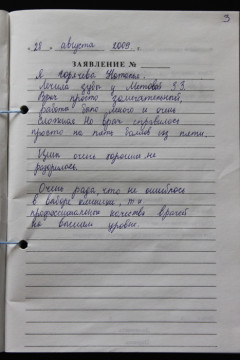 3
"28" августа 2009 г.
ЗАЯВЛЕНИЕ №
Я Горячева Наталья,
Лечила зубы у Метовой З.З.
Врач просто замечательный,
работы было много и очень
сложная. Но врач справилась
просто на пять баллов из пяти.
Цены очень хорошие, не
разорилась.
Очень рада, что не ошиблась
в выборе клиники, т.к
профессиональные качества врачей
на высшем уровне.